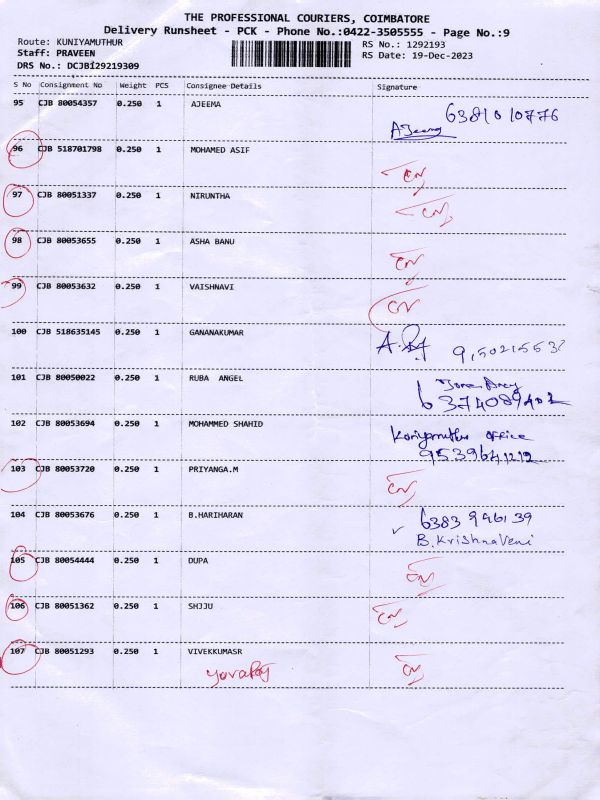 THE PROFESSIONAL COURIERS, COIMBATORE
Delivery Runsheet - PCK - Phone No.:0422-3505555 - Page No.:9
Route: KUNIYAMUTHUR
RS No.: 1292193
Staff: PRAVEEN
RS Date: 19-Dec-2023
DRS No.: DCJBI29219309
S No Consignment No Weight PCS Consignee Details Signature
95 CJB 80054357 0.250 1 AJEEMA 6381010776
AJeema
96 CJB 518701798 0.250 1 MOHAMED ASIF
97 CJB 80051337 0.250 1 NIRUNTHA
98 CJB 80053655 0.250 1 ASHA BANU
99 CJB 80053632 0.250 1 VAISHNAVI
100 CJB 518635145 0.250 1 GANANAKUMAR
101 CJB 80050022 0.250 1 RUBA ANGEL
102 CJB 80053694 0.250 1 MOHAMMED SHAHID office
103 CJB 80053720 0.250 1 PRIYANGA.M
104 CJB 80053676 0.250 1 B.HARIHARAN 6383996139
B.KrishnaVeni
105 CJB 80054444 0.250 1 DUPA
106 CJB 80051362 0.250 1 SHJJU
107 CJB 80051293 0.250 1 VIVEKKUMASR